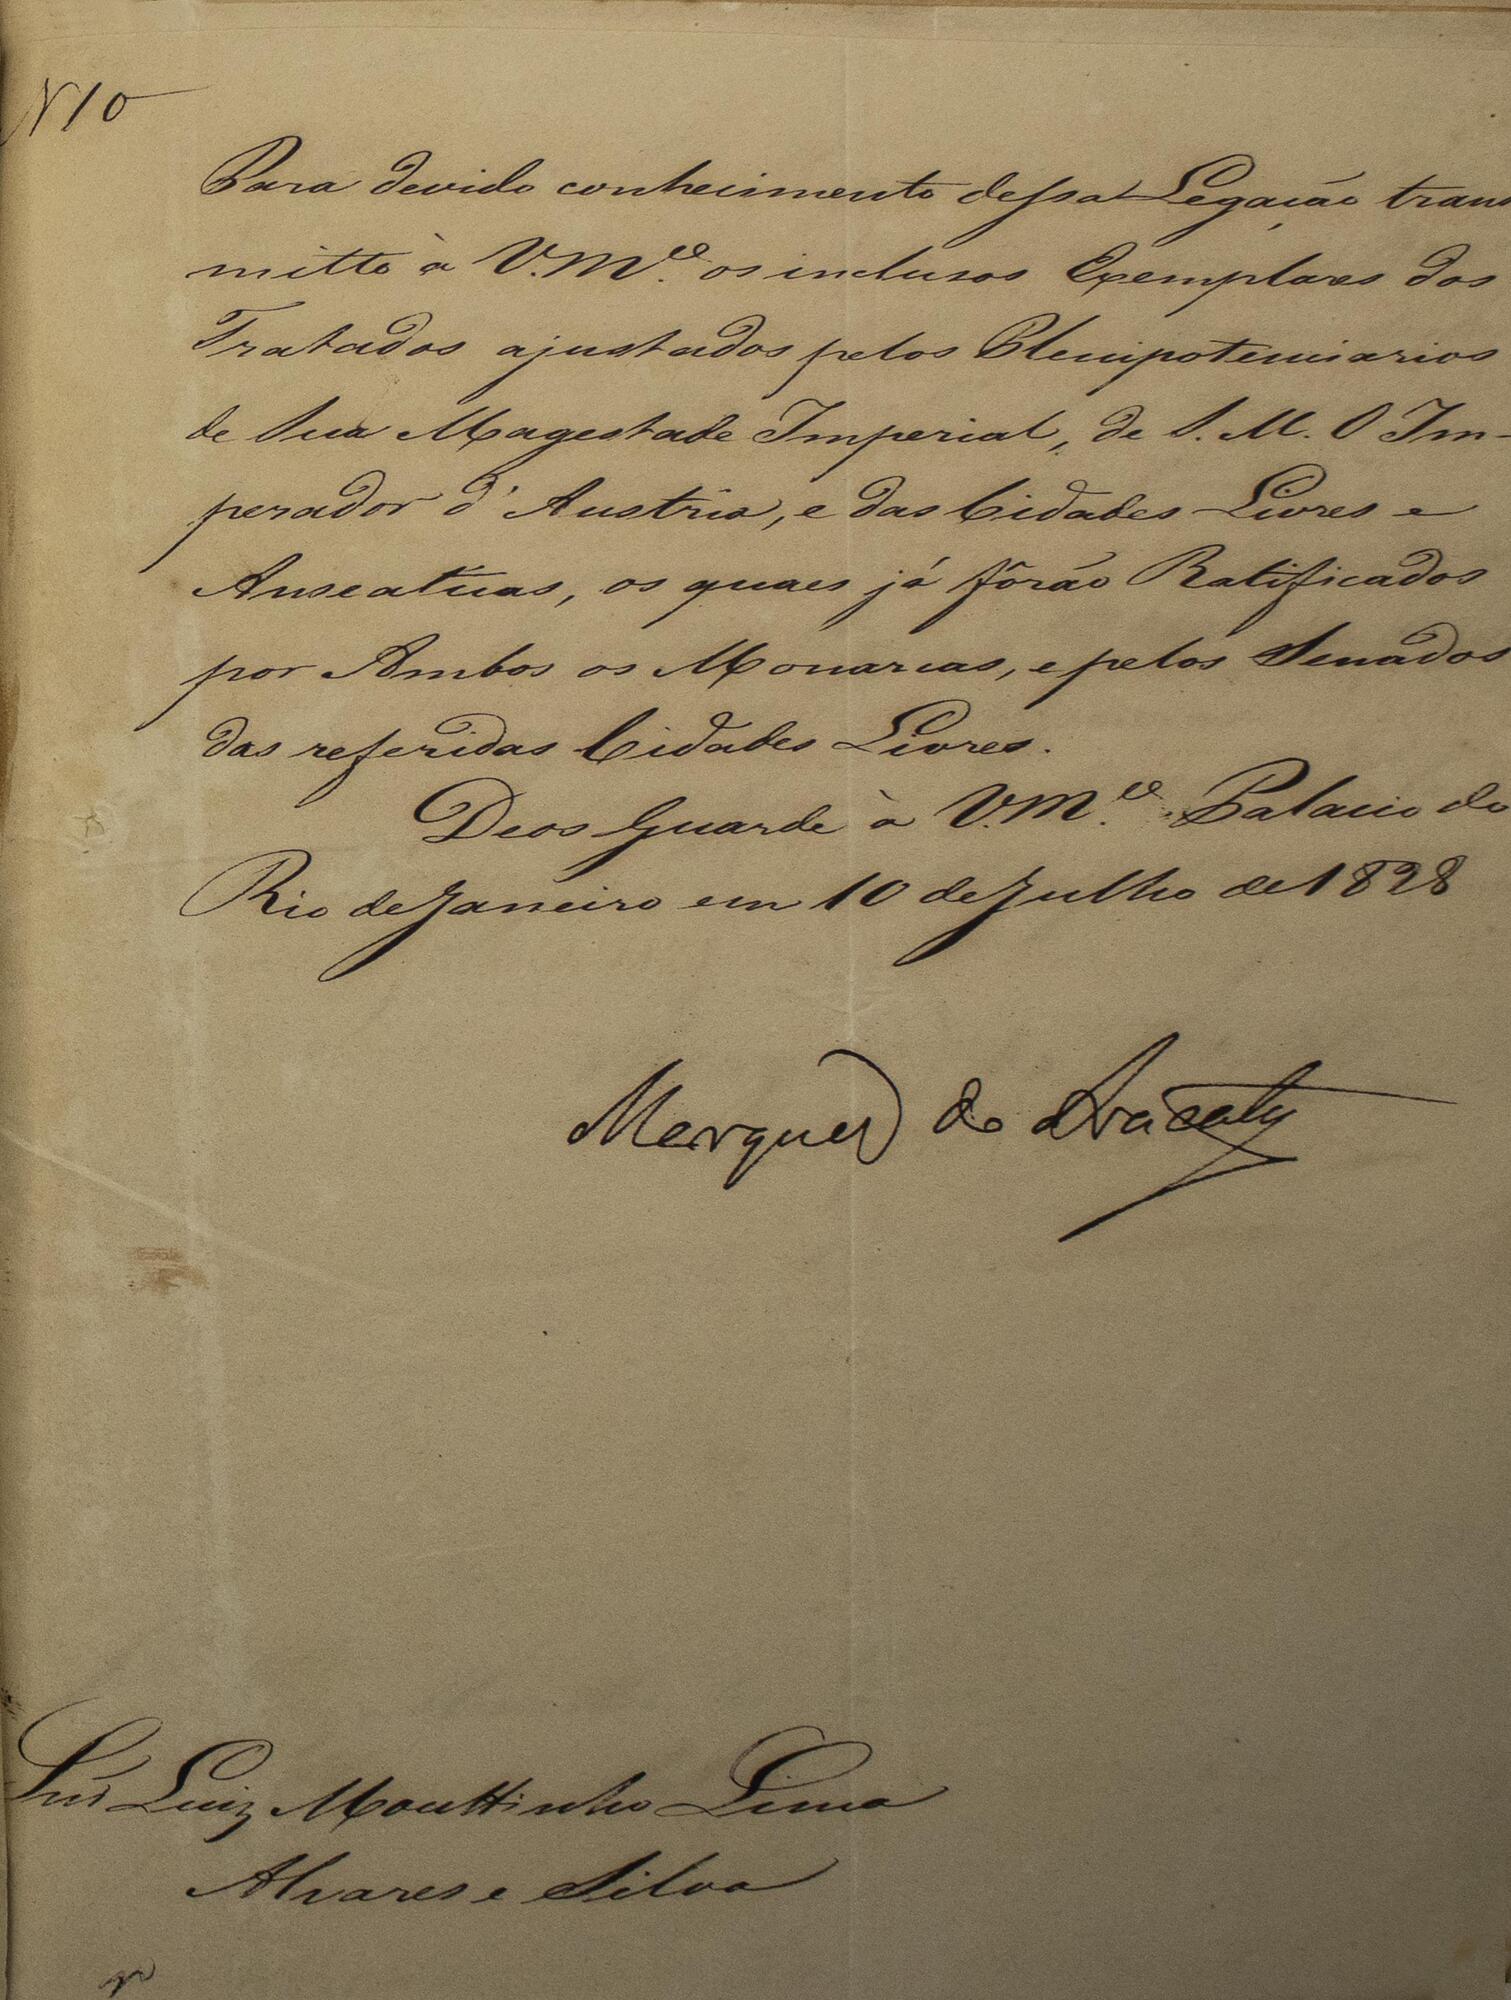 N 10
Para devido conhecimento dessa Legação trans
mitto à V.M.ce os inclusos Exemplares dos
Tratados ajustados pelos Plenipotenciarios
de Sua Magestade Imperial, de S. M. O Im-
perador d'Austria, e das Cidades Livres e
Anseaticas, os quaes já fôrão Ratificados
por Ambos os Monarcas, e pelos Senados
das referidas Cidades Livres.
Deos Guarde à V.M.ce Palacio do
Rio de Janeiro em 10 de Julho de 1828
Marquez do Aracaty
Snr Luiz Mouttinho Lima
Alvares e Silva